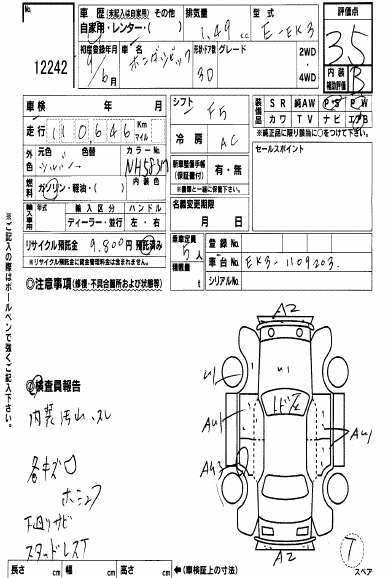 No.
12242
車歴(未記入は自家用)
自家用・レンター・( ) その他
排気量
1.49 cc
型式
E-EK3
評価点
3.5
初度登録年月
9/6月
車名
ホンダシビック
形状・ドア数
3D
グレード
2WD
4WD
内装
補助評価
B
車検 年 月
シフト
F5
装備品
SR 純AW PS PW
カワ TV ナビ エアB
※純正品に限り該当に○をつけて下さい。
走行
110,646 Km
マイル
冷房
AC
セールスポイント
外色
元色
シルバー
色替
カラーNo.
NH583M
内装色
燃料
ガソリン・軽油・( )
新車整備手帳
(保証書付)
有・無
※書類と一緒に保管下さい。
輸入車用
年式
輸入区分
ディーラー・並行
ハンドル
左・右
名義変更期限
月 日
リサイクル預託金 9,800円 預託済み
※リサイクル預託金に資金管理料金は含まれません。
乗車定員
5人
積載量
t
登録No.
車台No.
EK3-1109203.
シリアルNo.
◎注意事項(修復・不具合箇所および状態等)
※ご記入の際はボールペンで強くご記入下さい。
◎検査員報告
内装汚れ・スレ
各キズ凹
下廻りサビ
スタッドレスT
A2
U1
AU1
AU3
AU1
A2
T
スペア
長さ cm 幅 cm 高さ cm ←(車検証上の寸法)